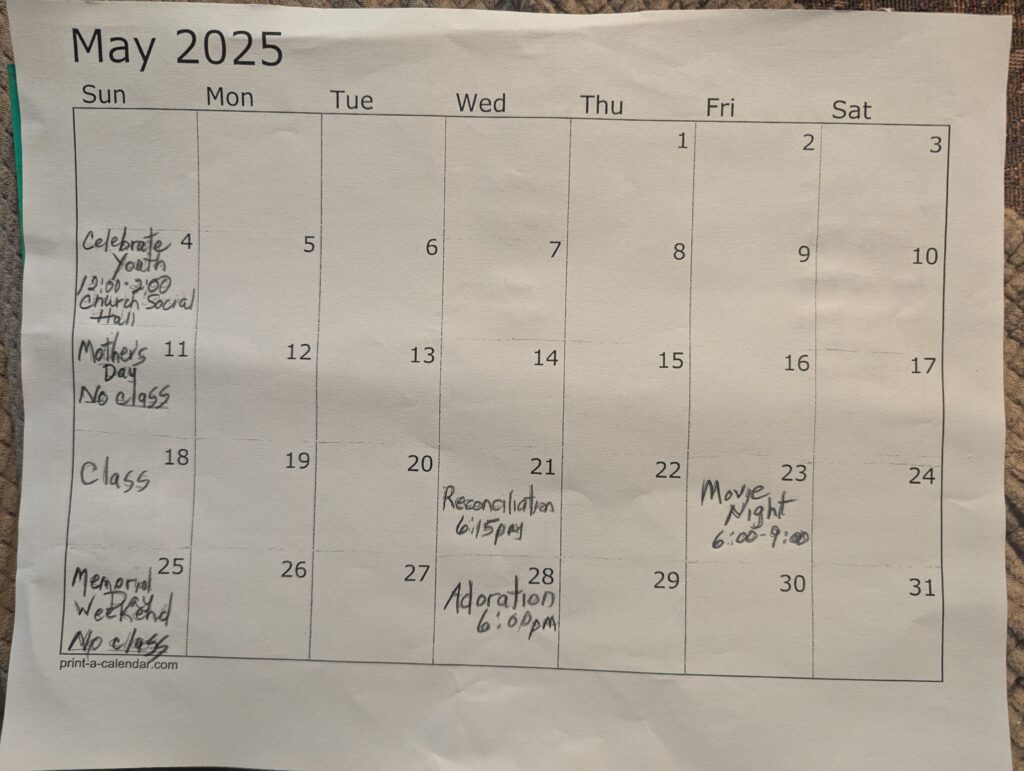 May 2025
Sun Mon Tue Wed Thu Fri Sat
1 2 3
Celebrate 4 5 6 7 8 9 10
Youth
12:00-2:00
Church Social
Hall
Mother's 11 12 13 14 15 16 17
Day
No class
18 19 20 21 22 23 24
Class
Reconciliation
6:15pm
Movie
Night
6:00-9:00
25 26 27 28 29 30 31
Memorial
Day
Weekend
No class
Adoration
6:00pm
print-a-calendar.com